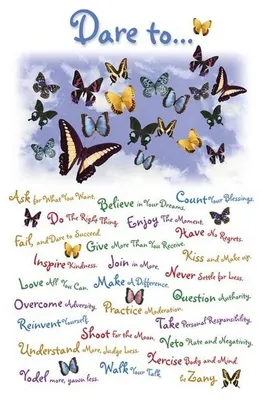 Dare to...
Ask for What You Want.
Believe in Your Dreams.
Count Your Blessings.
Do The Right Thing.
Enjoy The Moment.
Fail, and Dare to Succeed.
Give More Than You Receive.
Have No Regrets.
Inspire Kindness.
Join in More.
Kiss and Make up.
Love All You Can.
Make A Difference.
Never Settle for Less.
Overcome Adversity.
Practice Moderation.
Question Authority.
Reinvent Yourself.
Shoot For the Moon.
Take Personal Responsibility.
Understand More, Judge Less.
Walk Your Talk.
Veto Hate and Negativity.
Xercise Body and Mind.
Yodel more, yawn less.
be Zany